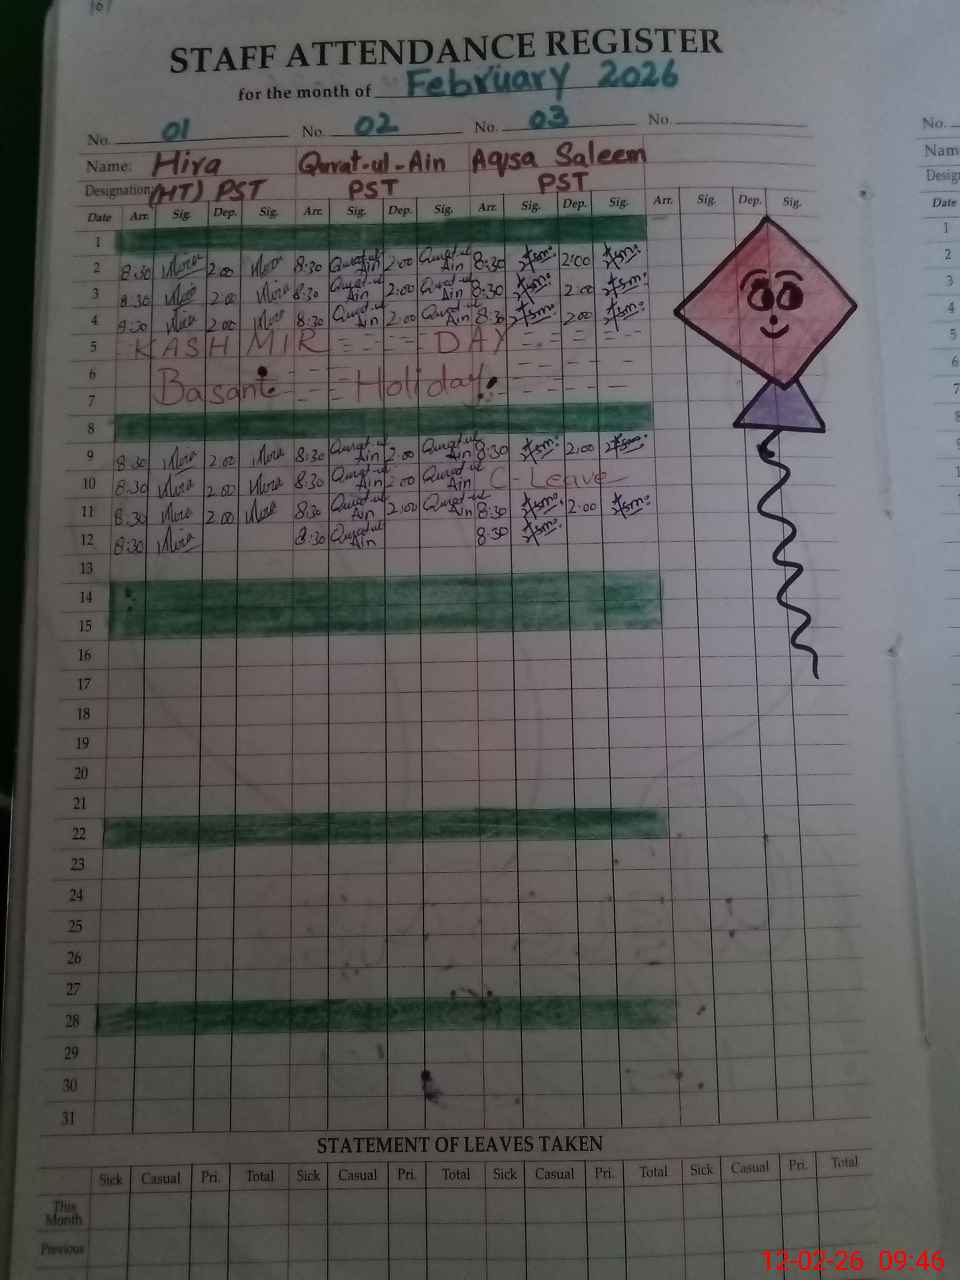 167
STAFF ATTENDANCE REGISTER
for the month of February 2026
No. 01 No. 02 No. 03 No. No.
Name: Hira Qurat-ul-Ain Aqsa Saleem Nam
Designation: (HT) PST PST PST Desig
Date Arr. Sig. Dep. Sig. Arr. Sig. Dep. Sig. Arr. Sig. Dep. Sig. Arr. Sig. Dep. Sig. Date
1 1
2 8:30 Hira 2:00 Hira 8:30 Qurat-ul-Ain 2:00 Qurat-ul-Ain 8:30 2:00 2
3 8:30 Hira 2:00 Hira 8:30 Qurat-ul-Ain 2:00 Qurat-ul-Ain 8:30 2:00 3
4 8:30 Hira 2:00 Hira 8:30 Qurat-ul-Ain 2:00 Qurat-ul-Ain 8:30 2:00 4
5 KASHMIR DAY 5
6 Basant Holiday. 6
7 7
8 8
9 8:30 Hira 2:00 Hira 8:30 Qurat-ul-Ain 2:00 Qurat-ul-Ain 8:30 2:00 9
10 8:30 Hira 2:00 Hira 8:30 Qurat-ul-Ain 2:00 Qurat-ul-Ain C-Leave 10
11 8:30 Hira 2:00 Hira 8:30 Qurat-ul-Ain 2:00 Qurat-ul-Ain 8:30 2:00 11
12 8:30 Hira 8:30 Qurat-ul-Ain 8:30 12
13 13
14 14
15 15
16 16
17 17
18 18
19 19
20 20
21 21
22 22
23 23
24 24
25 25
26 26
27 27
28 28
29 29
30 30
31 31
STATEMENT OF LEAVES TAKEN
Sick Casual Pri. Total Sick Casual Pri. Total Sick Casual Pri. Total Sick Casual Pri. Total
This Month
Previous
12-02-26 09:46